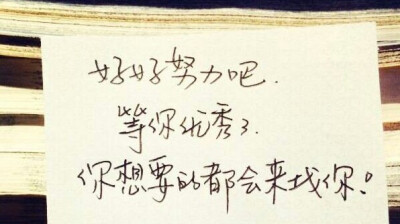 好好努力吧.
等你优秀了.
你想要的都会来找你!